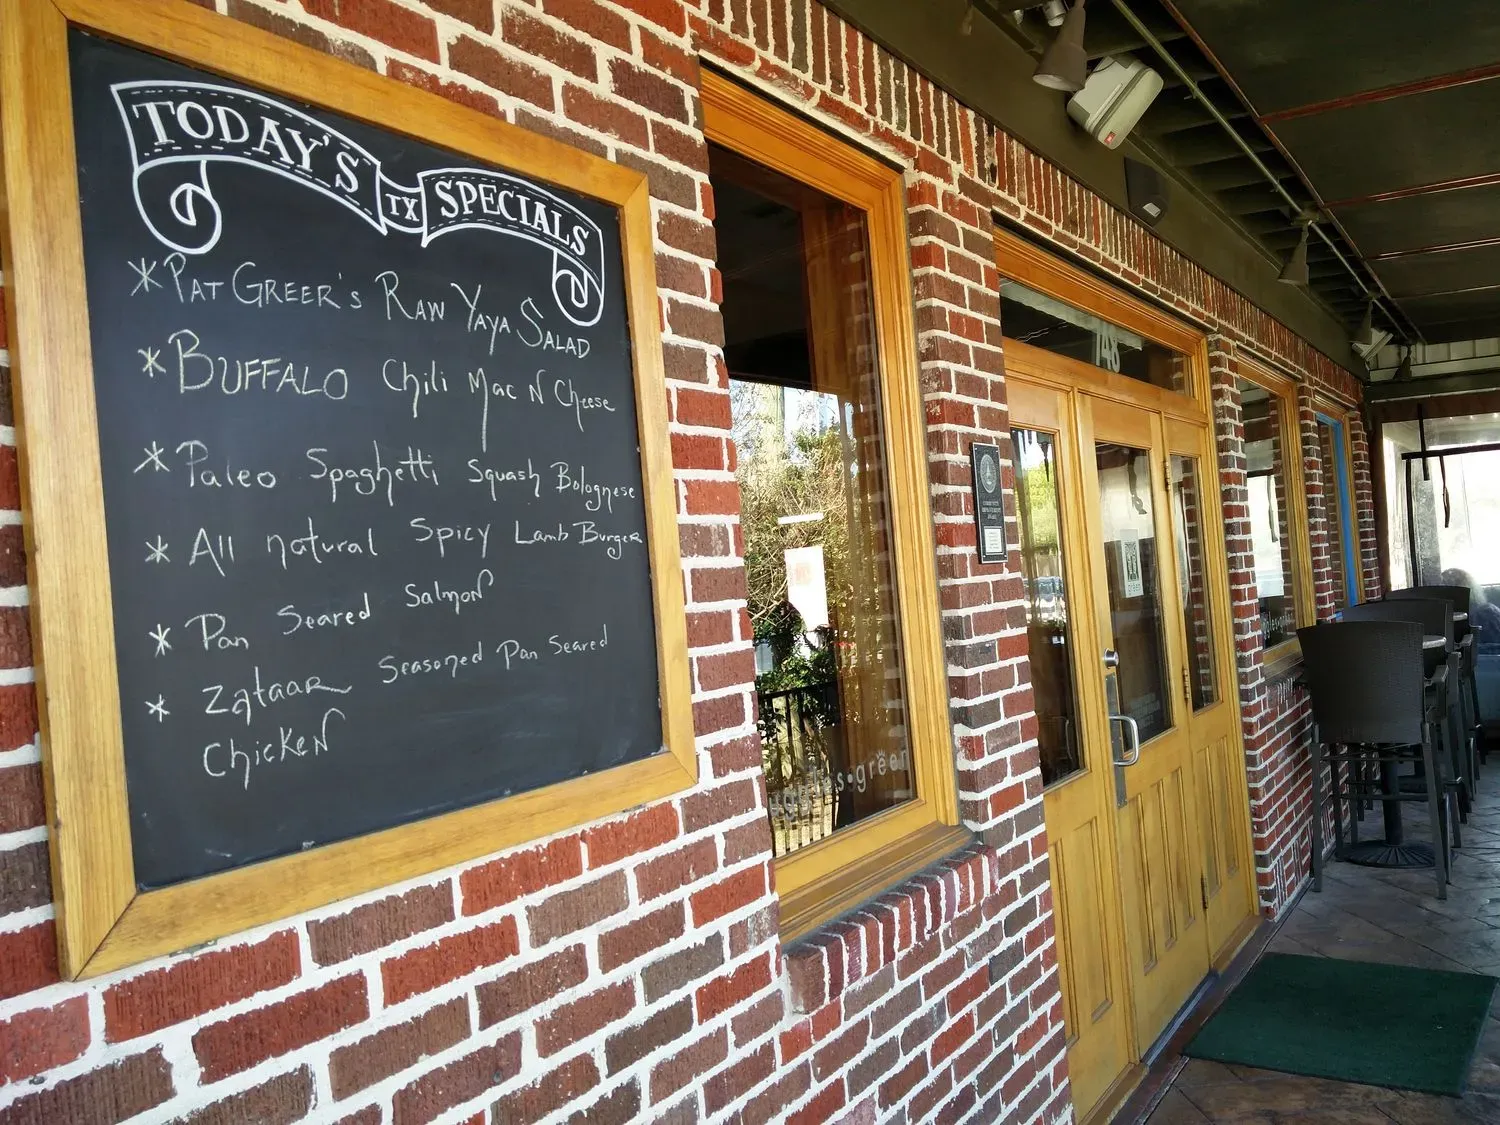 TODAY'S TX SPECIALS
*PAT GREER'S RAW YAYA SALAD
*BUFFALO Chili Mac N Cheese
*Paleo Spaghetti Squash Bolognese
*All natural Spicy Lamb Burger
*Pan Seared Salmon
*Zataar Seasoned Pan Seared
Chicken
748